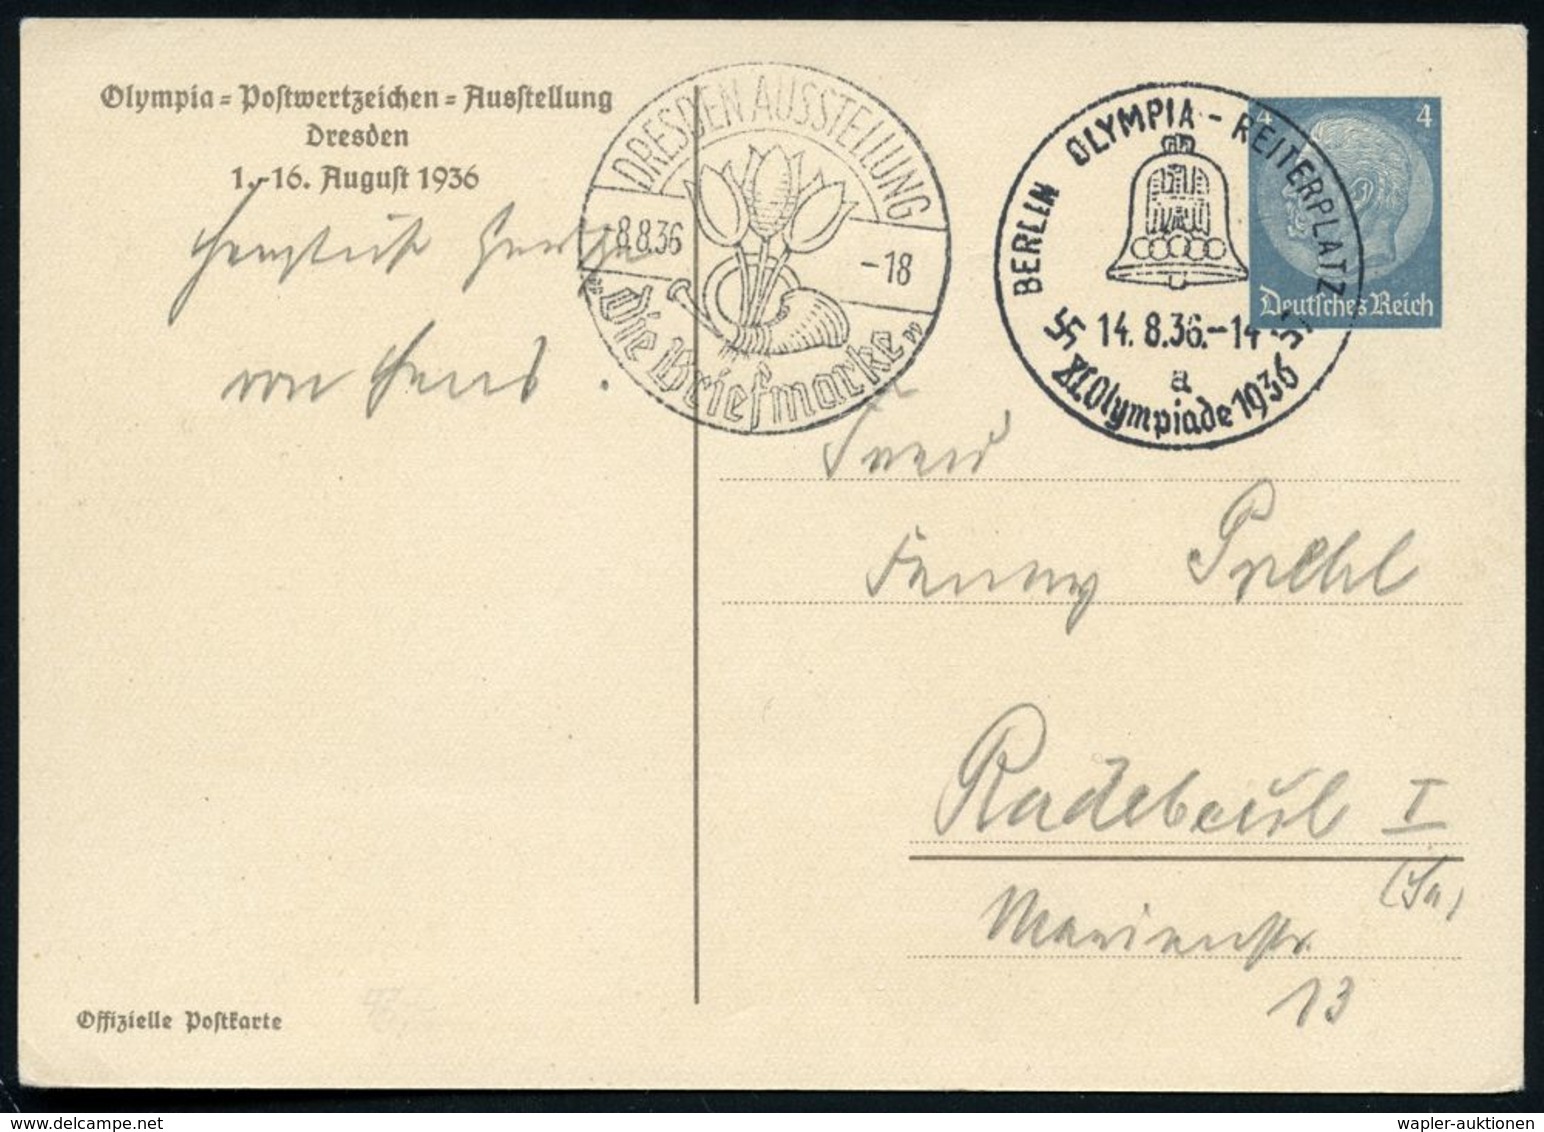 Olympia = Postwertzeichen = Ausstellung
Dresden
1.-16. August 1936
von
DRESDEN AUSSTELLUNG
8.8.36 -18
"Die Briefmarke"
BERLIN OLYMPIA - REITERPLATZ
14.8.36.-14
a
XI. Olympiade 1936
4 4
Deutsches Reich
Fenny
Radebeul I
(Sa)
Marienstr.
13
Offizielle Postkarte
wapler-auktionen